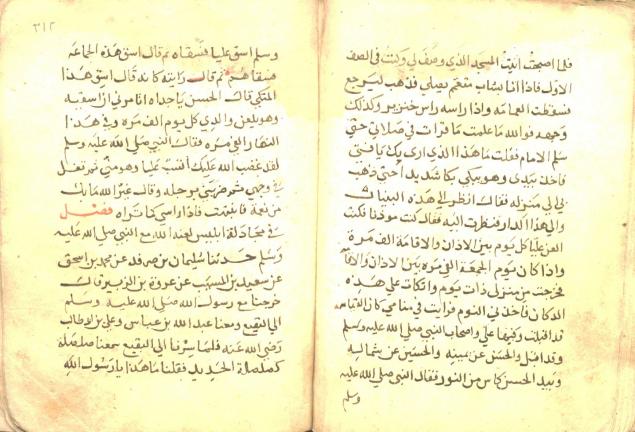 فلما اصبحت اتيت المسجد الذي وصف لي وكنت في الصف
الاول فاذا انا بشاب متعمم يصلي فذهب ليرجع
فسقطت العمامه واذا راسه راس خنزير وكذلك
وجهه فوالله ما علمت ما قرات في صلاتي حتى
سلم الامام فقلت ما هذا الذي ارى بك يا فتى
فاخذ بيدي وهو يبكي بكا شديد احتى ذهب
بي الى منزله فقال انظر الى هذه البنيان
والى هذا الدار فنظرت اليه فقال كنت موذنا فكنت
العن عليا كل يوم بين الاذان والاقامة الف مرة
واذا كان يوم الجمعة الفي مره بين الاذان والاقامه
فخرجت من منزلي ذات يوم واتكات على هذه
الدكان فاخذني النوم فرايت في منامي كان القيامه
قد اقبلت علي واصحاب النبي صلى الله عليه وسلم
وقد اقبل والحسن عن يمينه والحسين عن شماله
وبيد الحسن كاس من النور فقال النبي صلى الله عليه
وسلم
٣١٢
وسلم اسق عليا فسقاه ثم قال اسق هذه الجماعه
فسقاهم ثم قال رايته كانه قال اسق هذا
المتكي قال الحسن يا جداه اتامروني ان اسقيه
وهو يلعن والدي كل يوم الف مره وفي هذا
النهار الفي مره فقال النبي صلى الله عليه وسلم
لقد غضب الله عليك اتسب عليا وهو مني ثم تفل
في وجهي ثم ضربني برجله وقال غير الله ما بك
من نعمة فانتبهت فاذا راسي كما تراه فصل
في مجادلة ابليس لعنه الله مع النبي صلى الله عليه
وسلم حدثنا سليمان بن عن محمد بن اسحق
عن سعيد بن المسيب عن عروة بن الزبير قال
خرجنا مع رسول الله صلى الله عليه وسلم
الى البقيع ومعنا عبد الله بن عباس وعلي بن ابي طالب
رضي الله عنه فلما سرنا الى البقيع سمعنا صلصلة
كصلصلة الحديد فقلنا ما هذا يا رسول الله